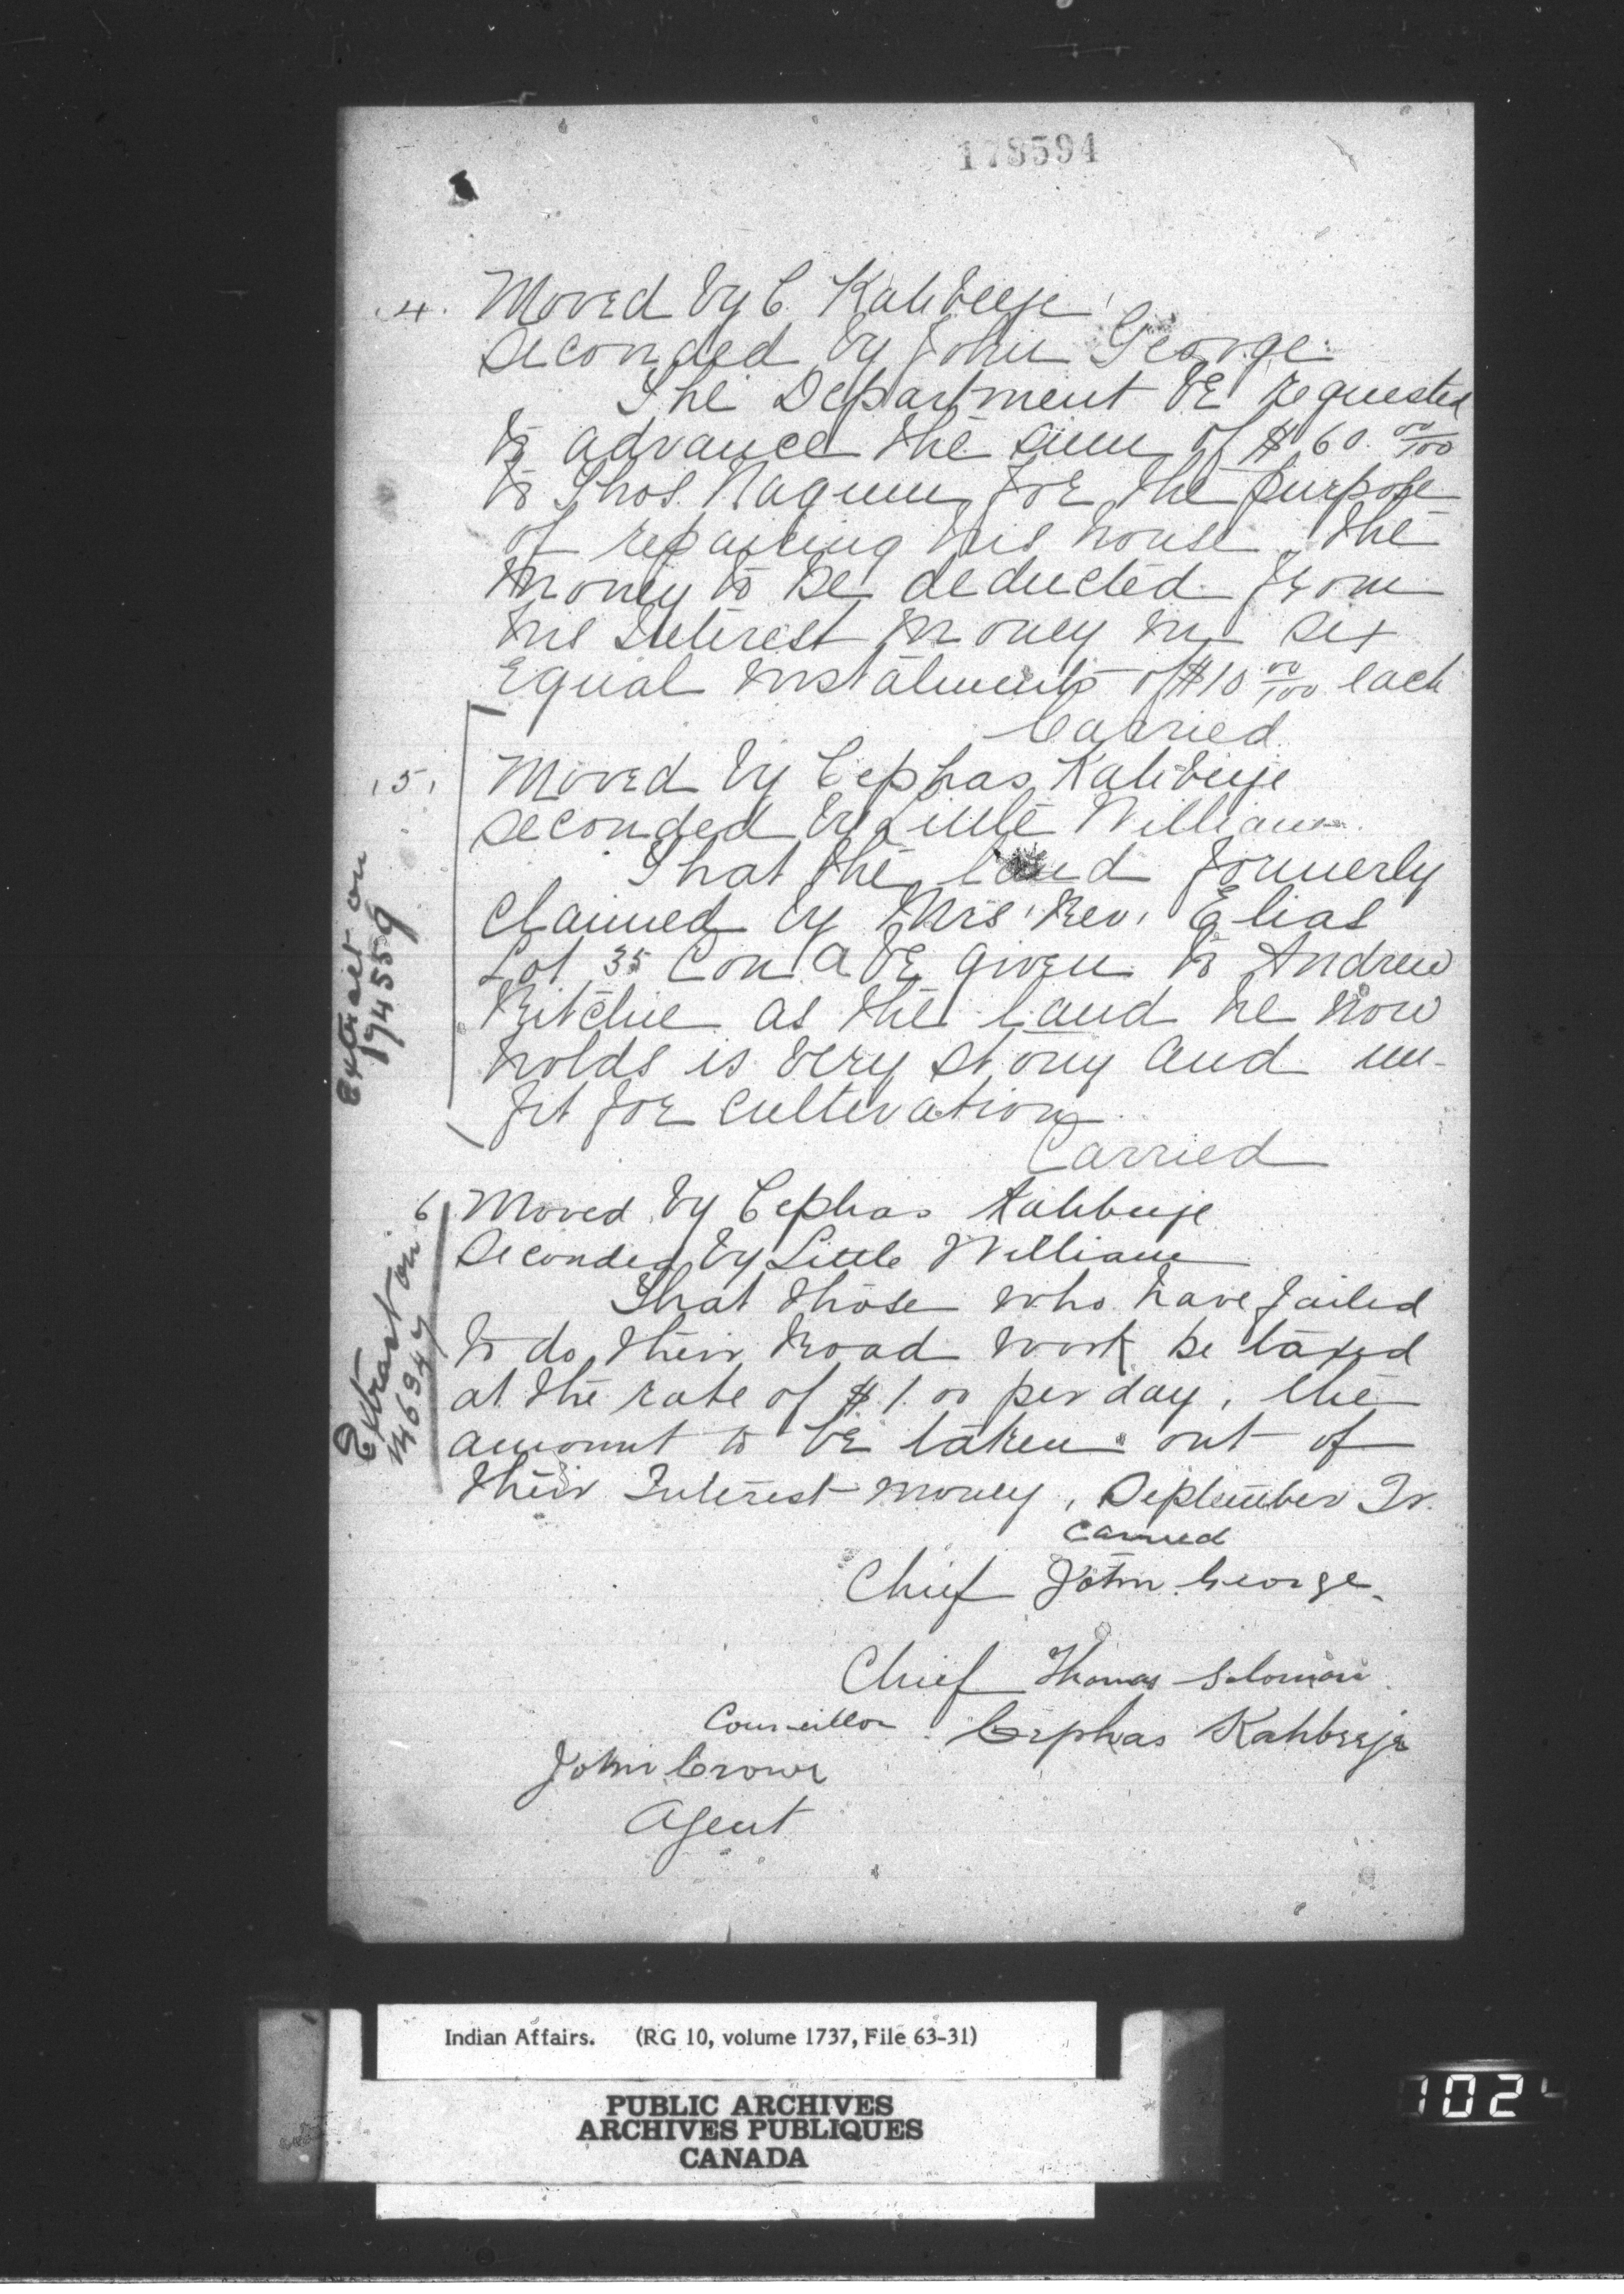 178594
4. Moved by C. Kahbeeje
Seconded by John George
The Department be requested
to advance the sum of $60 00/100
to Thos. Nagum for the purpose
of repairing his house, the
money to be deducted from
his Interest money in six
Equal instalments of $10 00/100 each
Carried
5. Moved by Cephas Kahbeeje
Seconded by Little William
That the land formerly
claimed by Mrs. Rev. Elias
Lot 35 Con A be given to Andrew
Ritchie as the land he now
holds is very stony and un-
fit for cultivation
Carried
Extract on
194559
6 Moved by Cephas Kahbeeje
Seconded by Little William
That those who have failed
to do their Road work be taxed
at the rate of $1.00 per day, the
amount to be taken out of
their Interest money, September Qr.
Carried
Extract on
Chief John George
Chief Thomas Solomon
Councillor Cephas Kahbeeje
John Crowe
Agent
Indian Affairs. (RG 10, volume 1737, File 63-31)
PUBLIC ARCHIVES
ARCHIVES PUBLIQUES
CANADA
1024